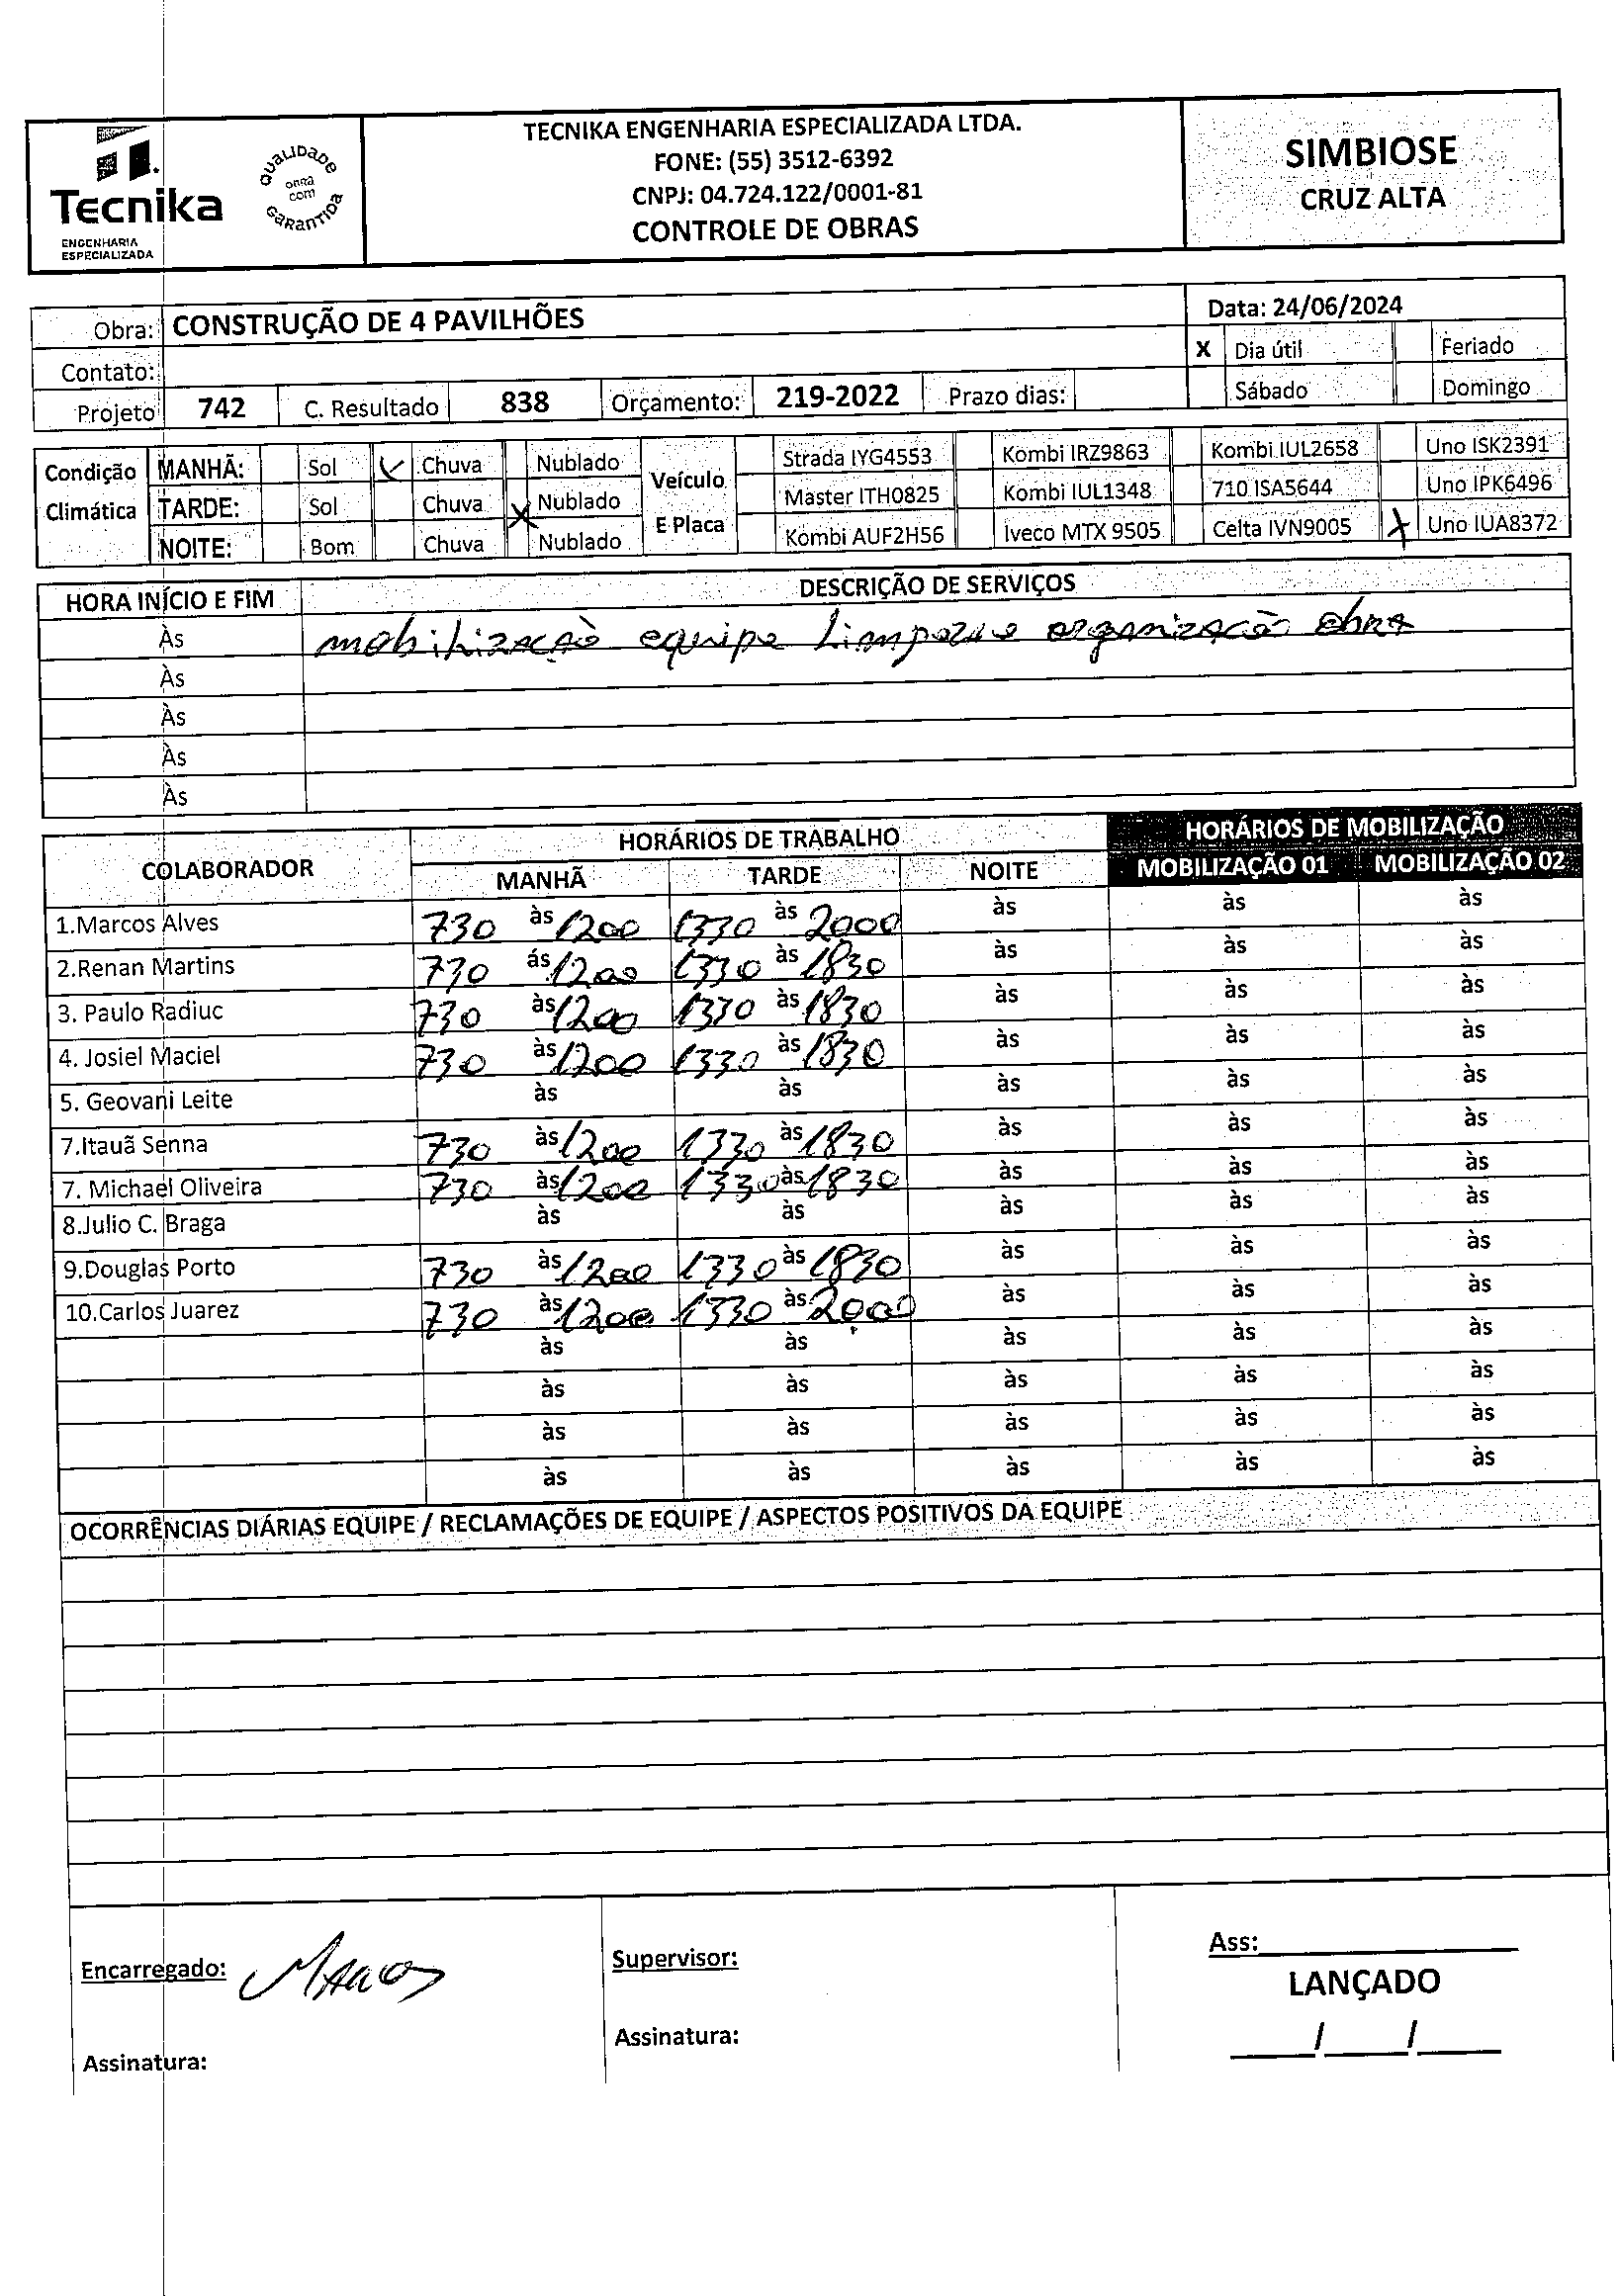 Tecnika
ENGENHARIA
ESPECIALIZADA
QUALIDADE
OBRA
COM
GARANTIDA
TECNIKA ENGENHARIA ESPECIALIZADA LTDA.
FONE: (55) 3512-6392
CNPJ: 04.724.122/0001-81
CONTROLE DE OBRAS
SIMBIOSE
CRUZ ALTA
Obra: CONSTRUÇÃO DE 4 PAVILHÕES
Data: 24/06/2024
Contato:
X Dia útil Feriado
Projeto 742 C. Resultado 838 Orçamento: 219-2022 Prazo dias:
Sábado Domingo
Condição Climática
MANHÃ: Sol ✓ Chuva Nublado
TARDE: Sol Chuva X Nublado
NOITE: Bom Chuva Nublado
Veículo E Placa
Strada IYG4553 Kombi IRZ9863 Kombi IUL2658 Uno ISK2391
Master ITH0825 Kombi IUL1348 710 ISA5644 Uno IPK6496
Kombi AUF2H56 Iveco MTX 9505 Celta IVN9005 X Uno IUA8372
HORA INÍCIO E FIM DESCRIÇÃO DE SERVIÇOS
Às mobilização equipe limpeza e organização obra
Às
Às
Às
Às
COLABORADOR HORÁRIOS DE TRABALHO HORÁRIOS DE MOBILIZAÇÃO
MANHÃ TARDE NOITE MOBILIZAÇÃO 01 MOBILIZAÇÃO 02
1.Marcos Alves 730 às 1200 1330 às 2000 às às às
2.Renan Martins 730 ás 1200 1330 às 1830 às às às
3. Paulo Radiuc 730 às 1200 1330 às 1830 às às às
4. Josiel Maciel 730 às 1200 1330 às 1830 às às às
5. Geovani Leite às às às às às
7.Itauã Senna 730 às 1200 1330 às 1830 às às às
7. Michael Oliveira 730 às 1200 1330 às 1830 às às às
8.Julio C. Braga às às às às às
9.Douglas Porto 730 às 1200 1330 às 1830 às às às
10.Carlos Juarez 730 às 1200 1330 às 2000 às às às
às às às às às
às às às às às
às às às às às
às às às às às
OCORRÊNCIAS DIÁRIAS EQUIPE / RECLAMAÇÕES DE EQUIPE / ASPECTOS POSITIVOS DA EQUIPE
Encarregado: Marcos
Supervisor:
Ass:
LANÇADO
Assinatura:
Assinatura:
___/___/___